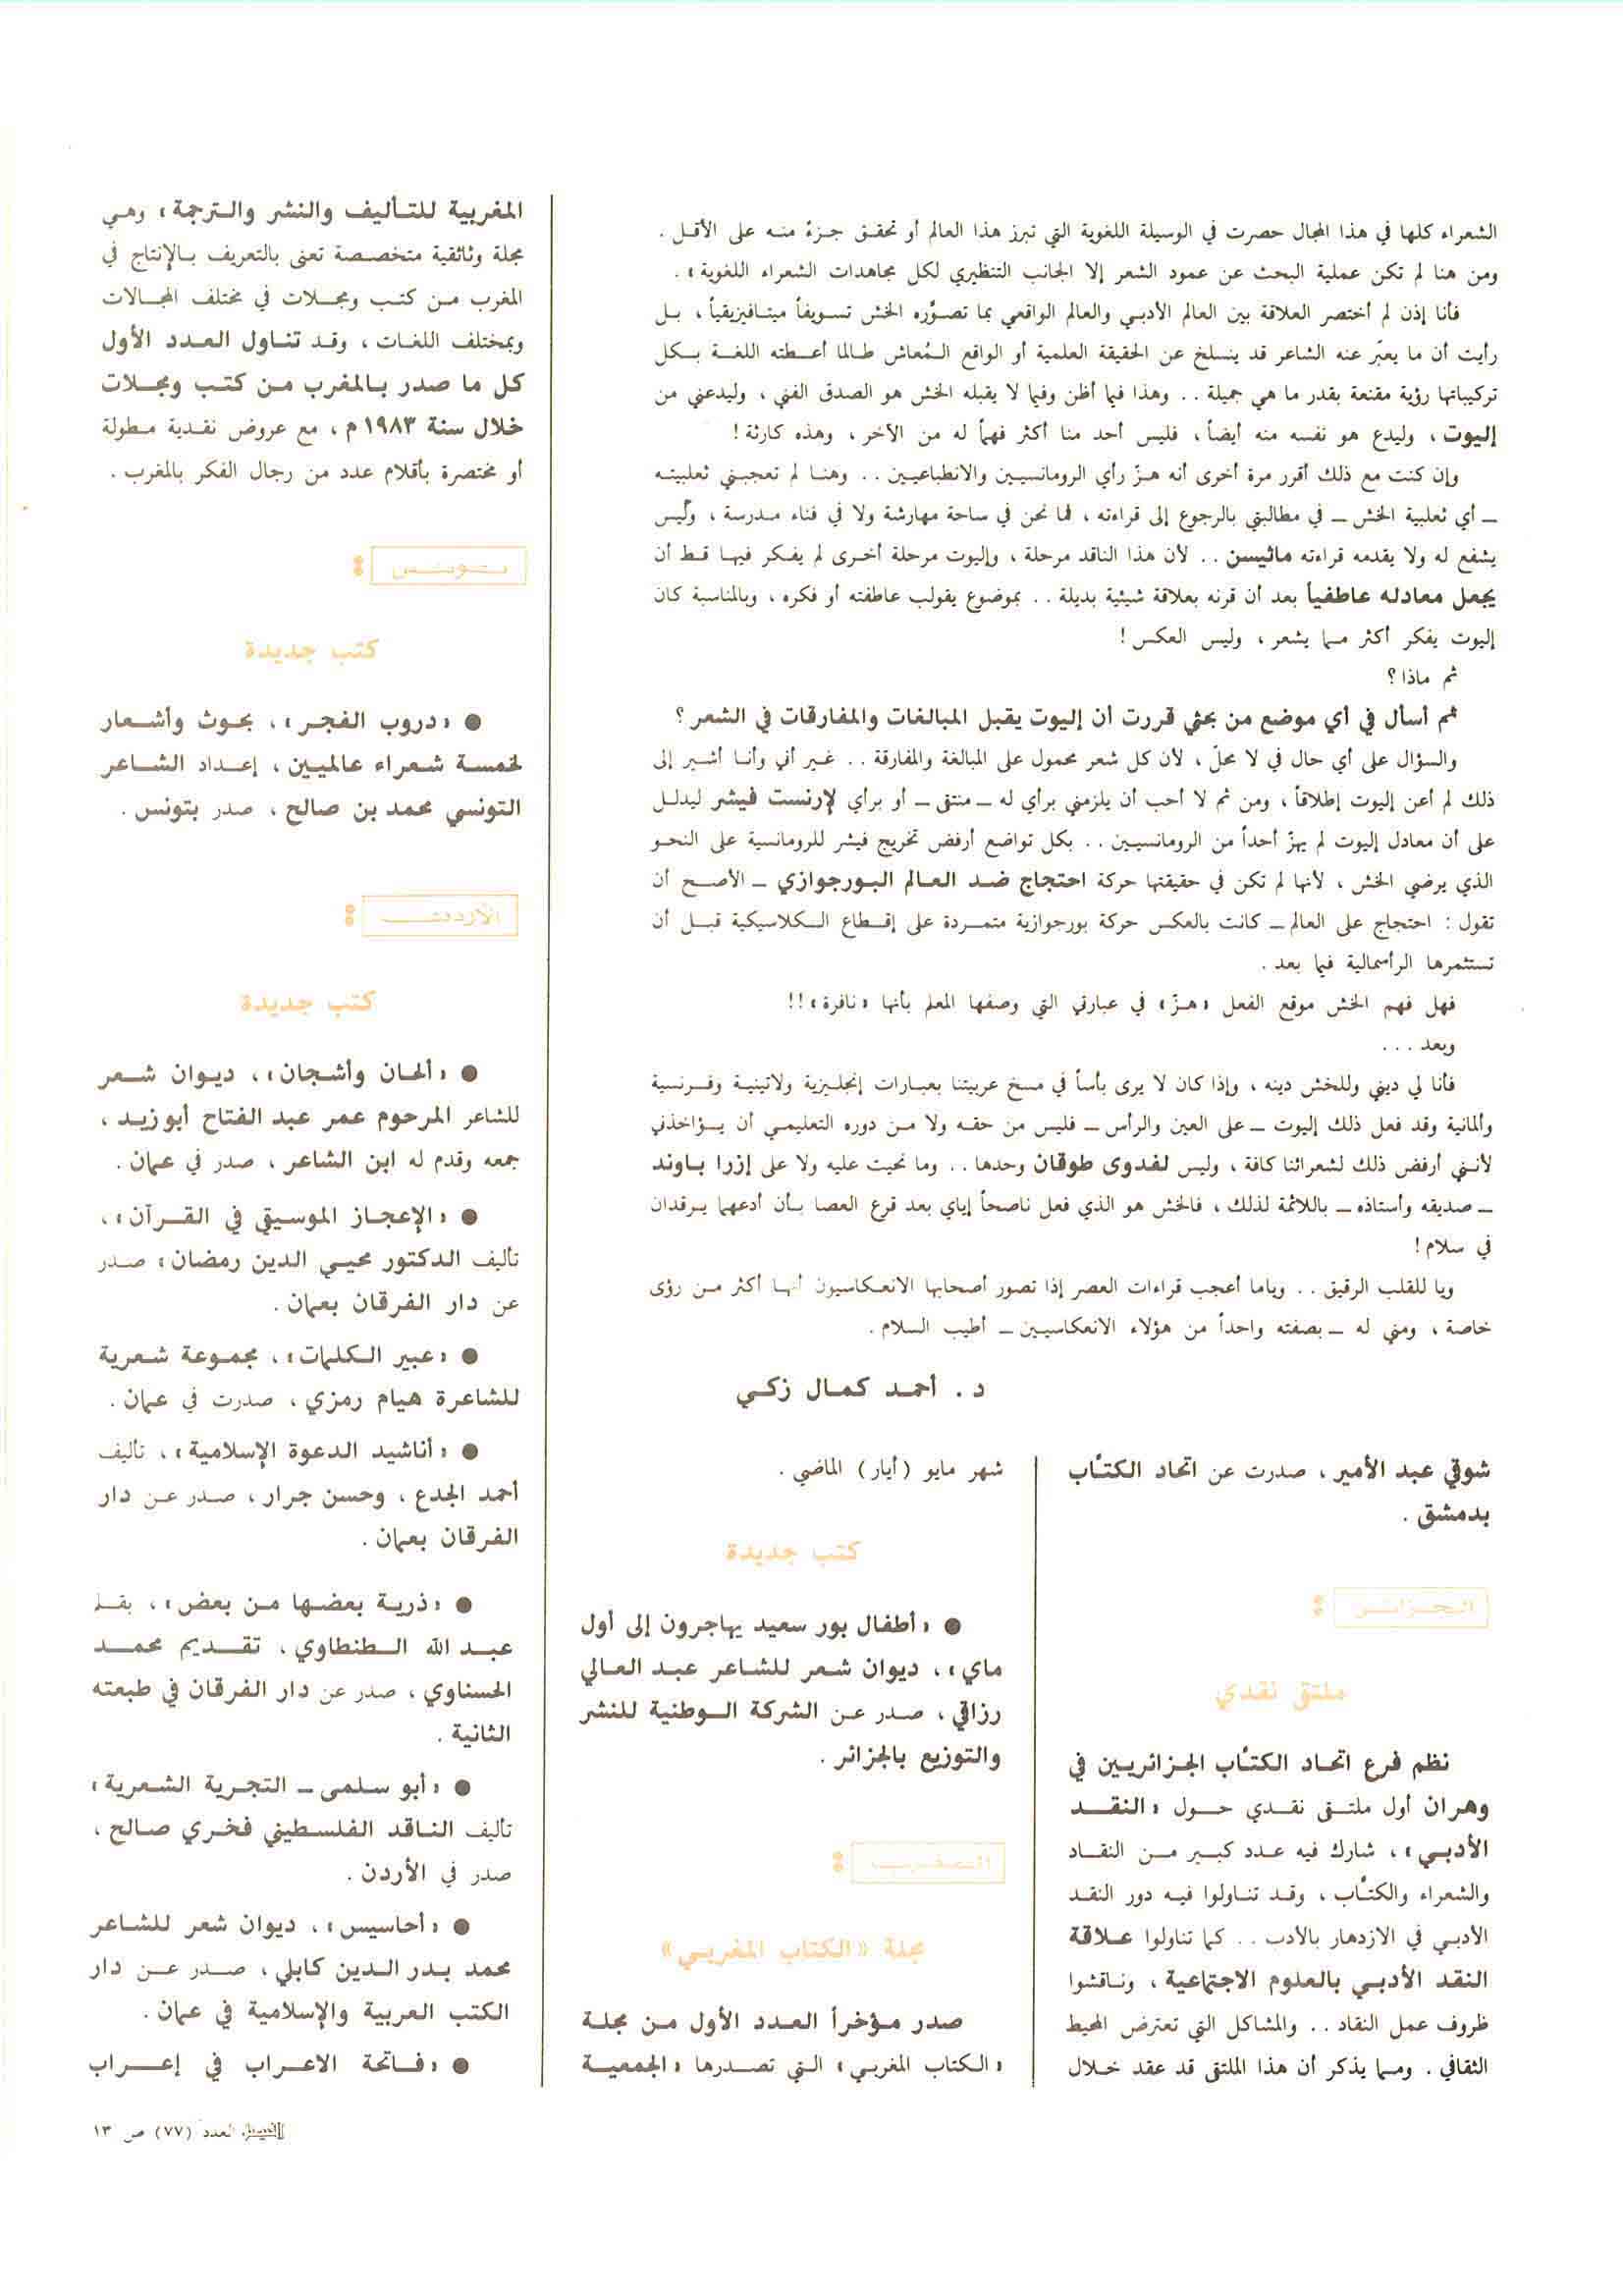 الشعراء كلها في هذا المجال حصرت في الوسيلة اللغوية التي تبرز هذا العالم أو تحقق جزءً منه على الأقل .
ومن هنا لم تكن عملية البحث عن عمود الشعر إلا الجانب التنظيري لكل مجاهدات الشعراء اللغوية» .
فأنا إذن لم أختصر العلاقة بين العالم الأدبي والعالم الواقعي بما تصوّره الخش تسويفاً ميتافيزيقياً ، بل
رأيت أن ما يعبّر عنه الشاعر قد ينسلخ عن الحقيقة العلمية أو الواقع المُعاش طالما أعطته اللغة بكل
تركيباتها رؤية مقنعة بقدر ما هي جميلة . . وهذا فيما أظن وفيما لا يقبله الخش هو الصدق الفني ، وليدعني من
إليوت ، وليدع هو نفسه منه أيضاً ، فليس أحد منا أكثر فهماً له من الآخر ، وهذه كارثة !
وإن كنت مع ذلك أقرر مرة أخرى أنه هزّ رأي الرومانسيين والانطباعيين . . وهنا لم تعجبني ثعلبيته
ــ أي ثعلبية الخش ــ في مطالبتي بالرجوع إلى قراءته ، فما نحن في ساحة مهارشة ولا في فناء مدرسة ، وليس
يشفع له ولا يقدمه قراءته ماثيسن . . لأن هذا الناقد مرحلة ، وإليوت مرحلة أخرى لم يفكر فيها قط أن
يجعل معادله عاطفياً بعد أن قرنه بعلاقة شيئية بديلة . . بموضوع يقولب عاطفته أو فكره ، وبالمناسبة كان
إليوت يفكر أكثر مما يشعر ، وليس العكس !
ثم ماذا ؟
ثم أسأل في أي موضع من بحثي قررت أن إليوت يقبل المبالغات والمفارقات في الشعر ؟
والسؤال على أي حال في لا محلّ ، لأن كل شعر محمول على المبالغة والمفارقة . . غير أني وأنا أشير إلى
ذلك لم أعن إليوت إطلاقاً ، ومن ثم لا أحب أن يلزمني برأي له ــ منتقى ــ أو برأي لإرنست فيشر ليدلل
على أن معادل إليوت لم يهزّ أحداً من الرومانسيين . . بكل تواضع أرفض تخريج فيشر للرومانسية على النحو
الذي يرضي الخش ، لأنها لم تكن في حقيقتها حركة احتجاج ضد العالم البورجوازي ــ الأصح أن
تقول : احتجاج على العالم ــ كانت بالعكس حركة بورجوازية متمردة على إقطاع الكلاسيكية قبل أن
تستثمرها الرأسمالية فيما بعد .
فهل فهم الخش موقع الفعل «هزّ» في عبارتي التي وصفها المعلم بأنها «نافرة» !!
وبعد . . .
فأنا لي ديني وللخش دينه ، وإذا كان لا يرى بأساً في مسخ عربيتنا بعبارات إنجليزية ولاتينية وفرنسية
وألمانية وقد فعل ذلك إليوت ــ على العين والرأس ــ فليس من حقه ولا من دوره التعليمي أن يؤاخذني
لأنني أرفض ذلك لشعرائنا كافة ، وليس لفدوى طوقان وحدها . . وما نحيت عليه ولا على إزرا باوند
ــ صديقه وأستاذه ــ باللائمة لذلك ، فالخش هو الذي فعل ناصحاً إياي بعد قرع العصا بأن أدعهما يرقدان
في سلام !
ويا للقلب الرقيق . . وياما أعجب قراءات العصر إذا تصور أصحابها الانعكاسيون أنها أكثر من رؤى
خاصة ، ومني له ــ بصفته واحداً من هؤلاء الانعكاسيين ــ أطيب السلام .
د . أحمد كمال زكي
شوقي عبد الأمير ، صدرت عن اتحاد الكتاب
بدمشق .
الجزائر :
ملتقى نقدي
نظم فرع اتحاد الكتاب الجزائريين في
وهران أول ملتقى نقدي حول «النقد
الأدبي» ، شارك فيه عدد كبير من النقاد
والشعراء والكتاب ، وقد تناولوا فيه دور النقد
الأدبي في الازدهار بالأدب . . كما تناولوا علاقة
النقد الأدبي بالعلوم الاجتماعية ، وناقشوا
ظروف عمل النقاد . . والمشاكل التي تعترض المحيط
الثقافي . ومما يذكر أن هذا الملتقى قد عقد خلال
شهر مايو (أيار) الماضي .
كتب جديدة
● «أطفال بور سعيد يهاجرون إلى أول
ماي» ، ديوان شعر للشاعر عبد العالي
رزاقي ، صدر عن الشركة الوطنية للنشر
والتوزيع بالجزائر .
المغرب :
مجلة «الكتاب المغربي»
صدر مؤخراً العدد الأول من مجلة
«الكتاب المغربي» التي تصدرها «الجمعية
المغربية للتأليف والنشر والترجمة» وهي
مجلة وثائقية متخصصة تعنى بالتعريف بالإنتاج في
المغرب من كتب ومجلات في مختلف المجالات
وبمختلف اللغات ، وقد تناول العدد الأول
كل ما صدر بالمغرب من كتب ومجلات
خلال سنة ١٩٨٣ م ، مع عروض نقدية مطولة
أو مختصرة بأقلام عدد من رجال الفكر بالمغرب .
تونس :
كتب جديدة
● «دروب الفجر» ، بحوث وأشعار
لخمسة شعراء عالميين ، إعداد الشاعر
التونسي محمد بن صالح ، صدر بتونس .
الأردن :
كتب جديدة
● «ألحان وأشجان» ، ديوان شعر
للشاعر المرحوم عمر عبد الفتاح أبوزيد ،
جمعه وقدم له ابن الشاعر ، صدر في عمان .
● «الإعجاز الموسيقي في القرآن» ،
تأليف الدكتور محيي الدين رمضان» صدر
عن دار الفرقان بعمان .
● «عبير الكلمات» ، مجموعة شعرية
للشاعرة هيام رمزي ، صدرت في عمان .
● «أناشيد الدعوة الإسلامية» ، تأليف
أحمد الجدع ، وحسن جرار ، صدر عن دار
الفرقان بعمان .
● «ذرية بعضها من بعض» ، بقلم
عبد الله الطنطاوي ، تقديم محمد
الحسناوي ، صدر عن دار الفرقان في طبعته
الثانية .
● «أبو سلمى ــ التجربة الشعرية»
تأليف الناقد الفلسطيني فخري صالح ،
صدر في الأردن .
● «أحاسيس» ، ديوان شعر للشاعر
محمد بدر الدين كابلي ، صدر عن دار
الكتب العربية والإسلامية في عمان .
● «فاتحة الاعراب في إعراب
الفيصل العدد (٧٧) ص ١٣